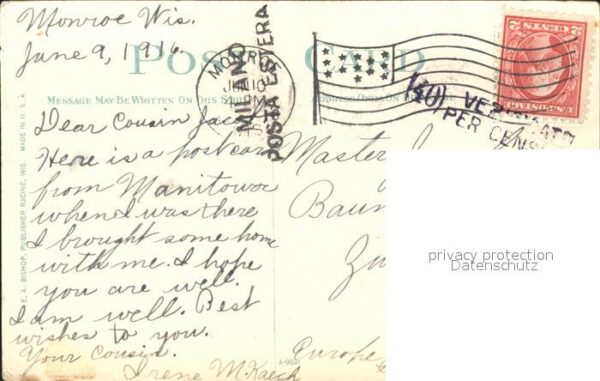 Monroe Wis.
June 9, 1916.
POST CARD
MONROE
JUN 10
MILANO
POSTA ESTERA
2 CENTS 2
U.S. POSTAGE
(40) VERIFICATO
PER CENSURA
MESSAGE MAY BE WRITTEN ON THIS SIDE
ADDRESS ONLY ON
Dear Cousin Jac
Here is a postcard
from Manitowoc
when I was there
I brought some home
with me. I hope
you are well.
I am well. Best
wishes to you.
Your Cousin.
Irene M. Kaech
Master
Baum
Zü
Europe
E. A. BISHOP, PUBLISHER RACINE, WIS. MADE IN U.S.A.
privacy protection
Datenschutz